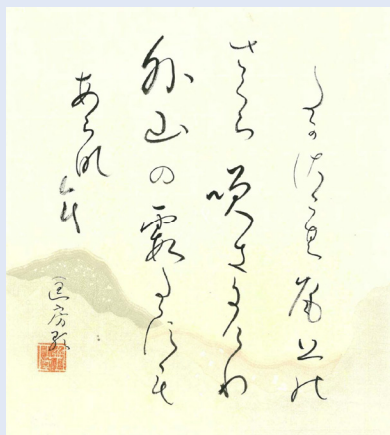 たかさごの尾上の
さくら咲きにけり
外山の霞たゝずも
あらなむ
匡房